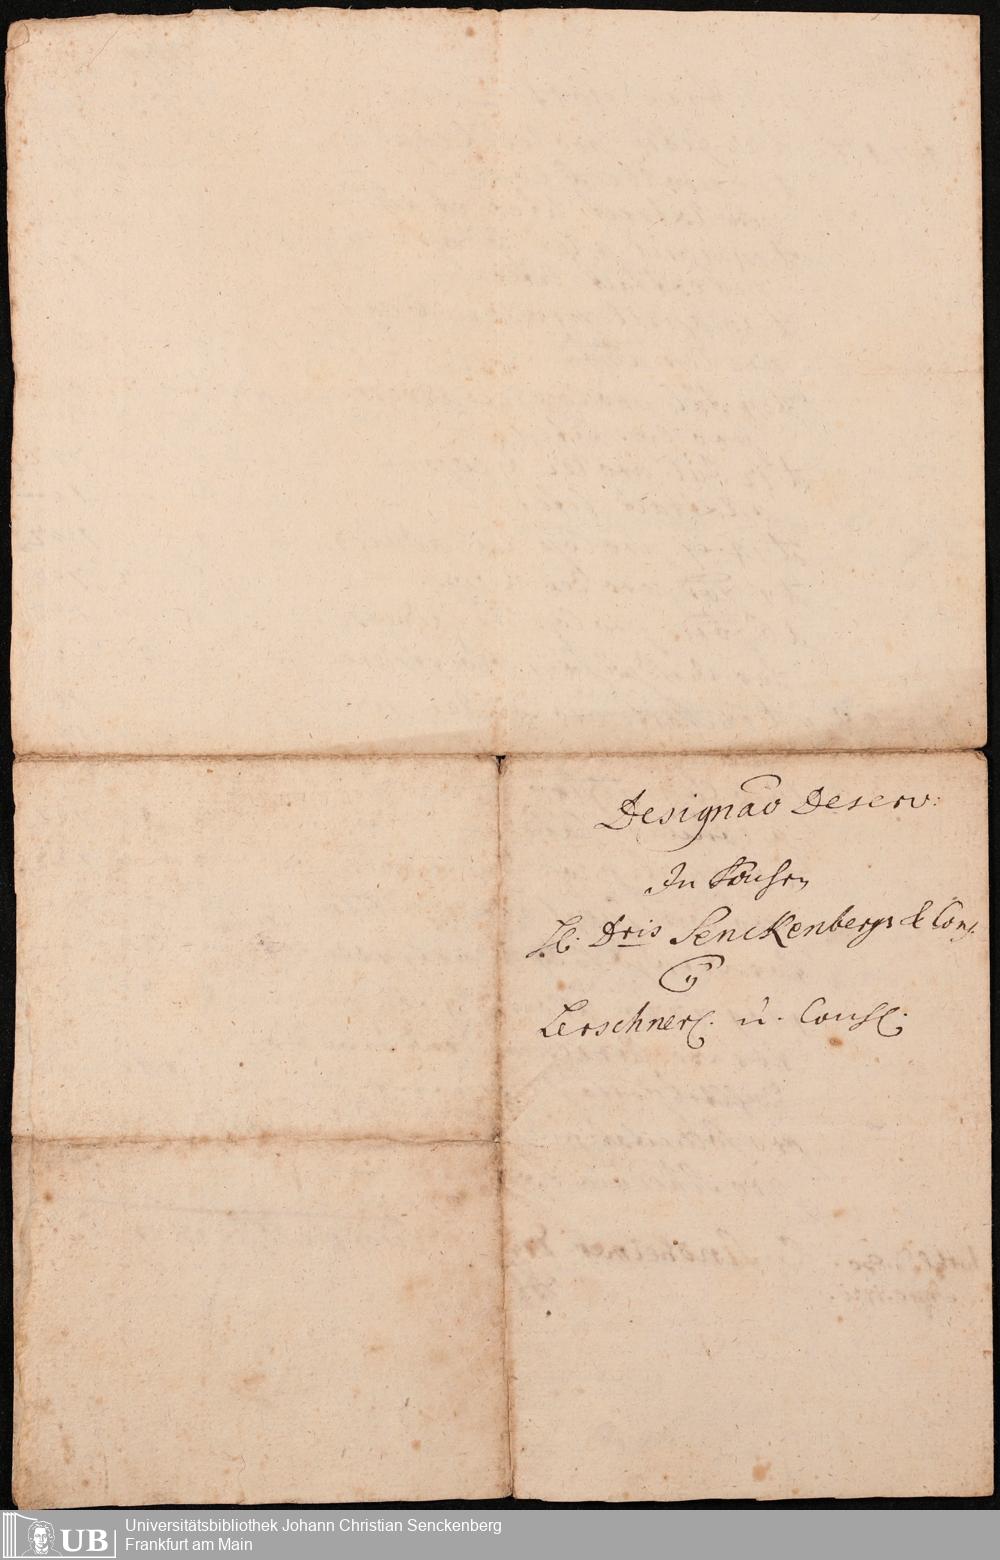 Designão Deserv:
In Sachen
H: Dris Senckenbergs & Cons.
Lerschner. u. Cons.
UB
Universitätsbibliothek Johann Christian Senckenberg
Frankfurt am Main